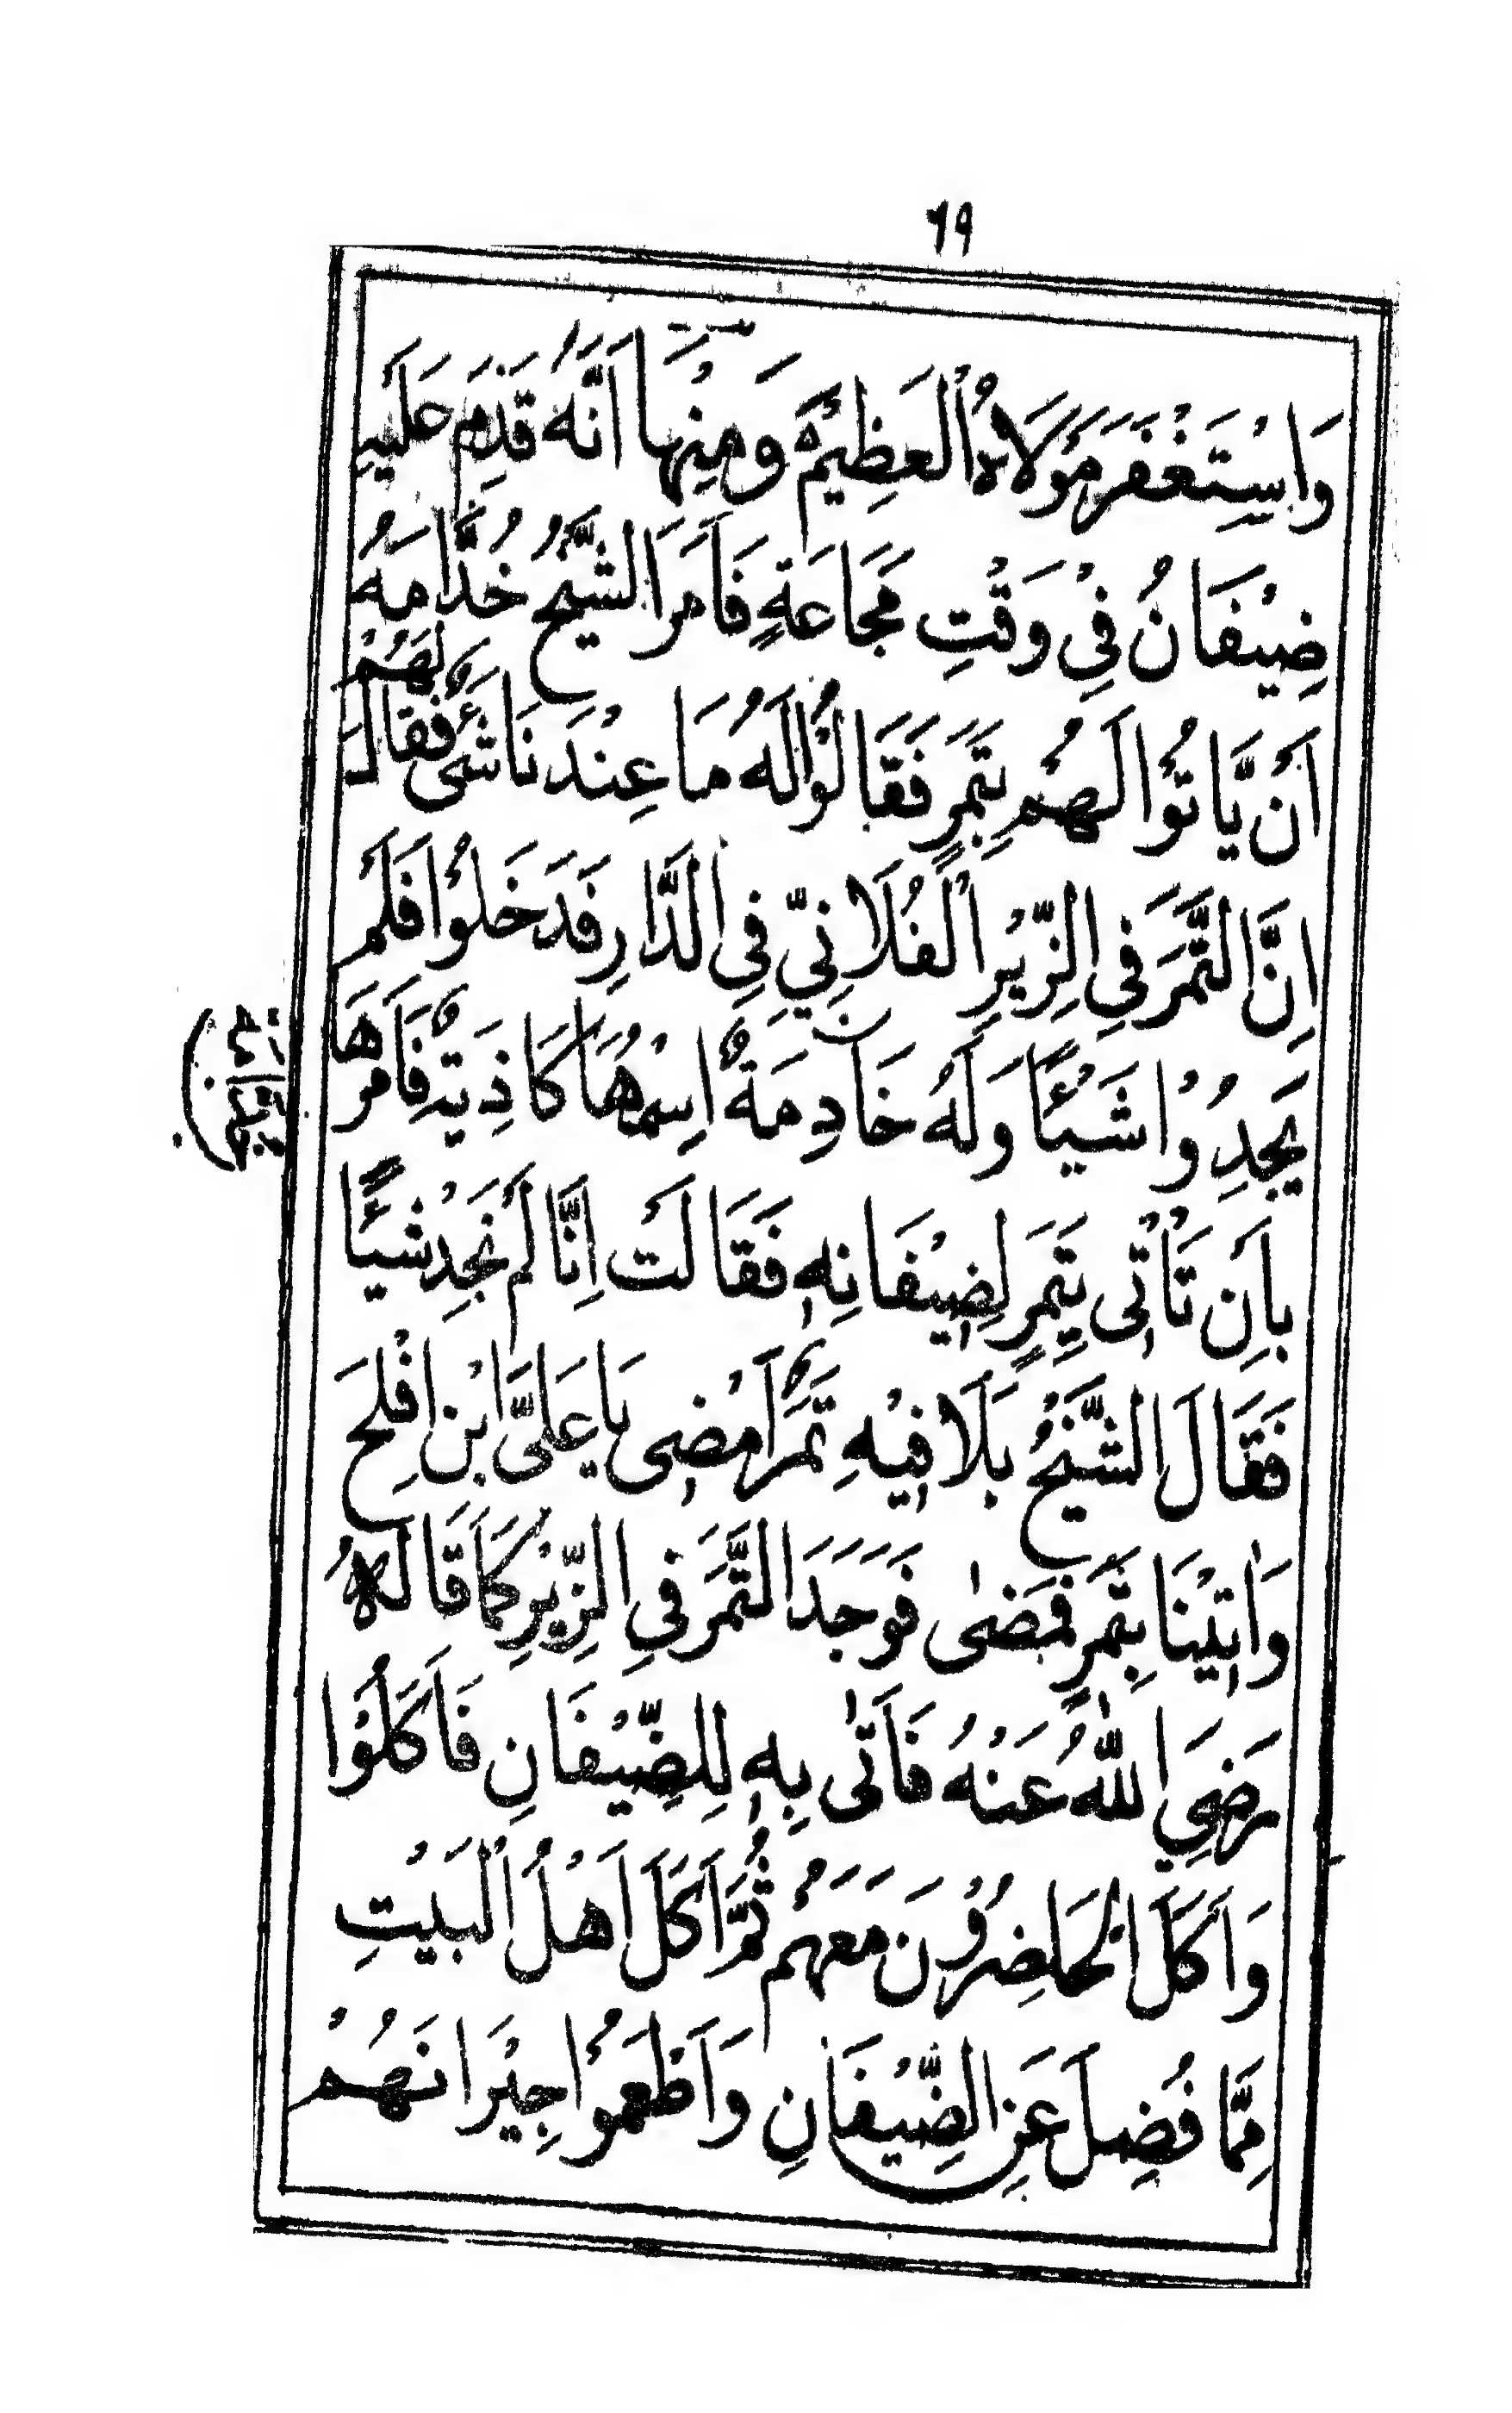 ٦٩
وَاسْتَغْفَرَ مَوْلَاهُ الْعَظِيْمَ وَمِنْهَا اَنَّهُ قَدِمَ عَلَيْهِ
ضِيْفَانُ فِيْ وَقْتِ مَجَاعَةٍ فَاَمَرَ الشَّيْخُ خُدَّامَهُ
اَنْ يَّاتُوْا لَهُمْ بِتَمْرٍ فَقَالُوْا لَهُ مَا عِنْدَنَا شَىْءٌ فَقَالَ لَهُمْ
اِنَّ التَّمْرَ فِي الزِّيْرِ الْفُلَانِيِّ فِي الدَّارِ فَدَخَلُوْا فَلَمْ
يَجِدُوْا شَيْئًا وَلَهُ خَادِمَةٌ اِسْمُهَا كَاذِيَةٌ فَاَمَرَهَا
بِاَنْ تَاْتِى بِتَمْرٍ لِضِيْفَانِهٖ فَقَالَتْ اِنَّا لَمْ نَجِدْ شَيْئًا
فَقَالَ الشَّيْخُ بَلَا فِيْهِ تَمْرٌ اَمْضِى يَا عَلِىَّ ابْنَ اَفْلَحَ
وَاٰتِيْنَا بِتَمْرٍ فَمَضٰى فَوَجَدَ التَّمْرَ فِي الزِّيْرِ كَمَا قَالَ لَهُ
رَضِيَ اللّٰهُ عَنْهُ فَاَتٰى بِهٖ لِلضِّيْفَانِ فَاَكَلُوْا
وَاَكَلَ الْحَاضِرُوْنَ مَعَهُمْ ثُمَّ اَكَلَ اَهْلُ الْبَيْتِ
مِمَّا فُضِلَ عَنِ الضِّيْفَانِ وَاَطْعَمُوْا جِيْرَانَهُمْ